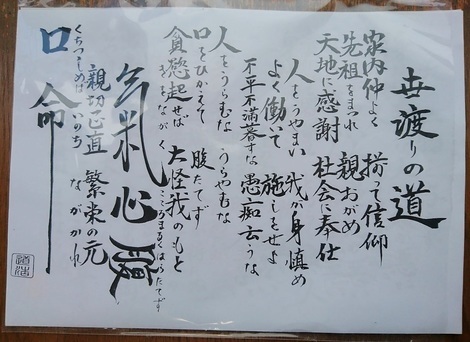 世渡りの道
家内仲よく 揃って信仰
先祖をまつれ 親おがめ
天地に感謝 社会に奉仕
人をうやまい 我が身慎め
よく働いて 施しをせよ
不平不満暮すな 愚痴云うな
人をうらむな うらやむな
口をひかえて 腹たてず
貪慾起せば 大怪我のもと
きをながく こころまるくはらたてず
氣心腹
口命
くちつつしめば いのち ながかれ
親切正直 繁栄の元